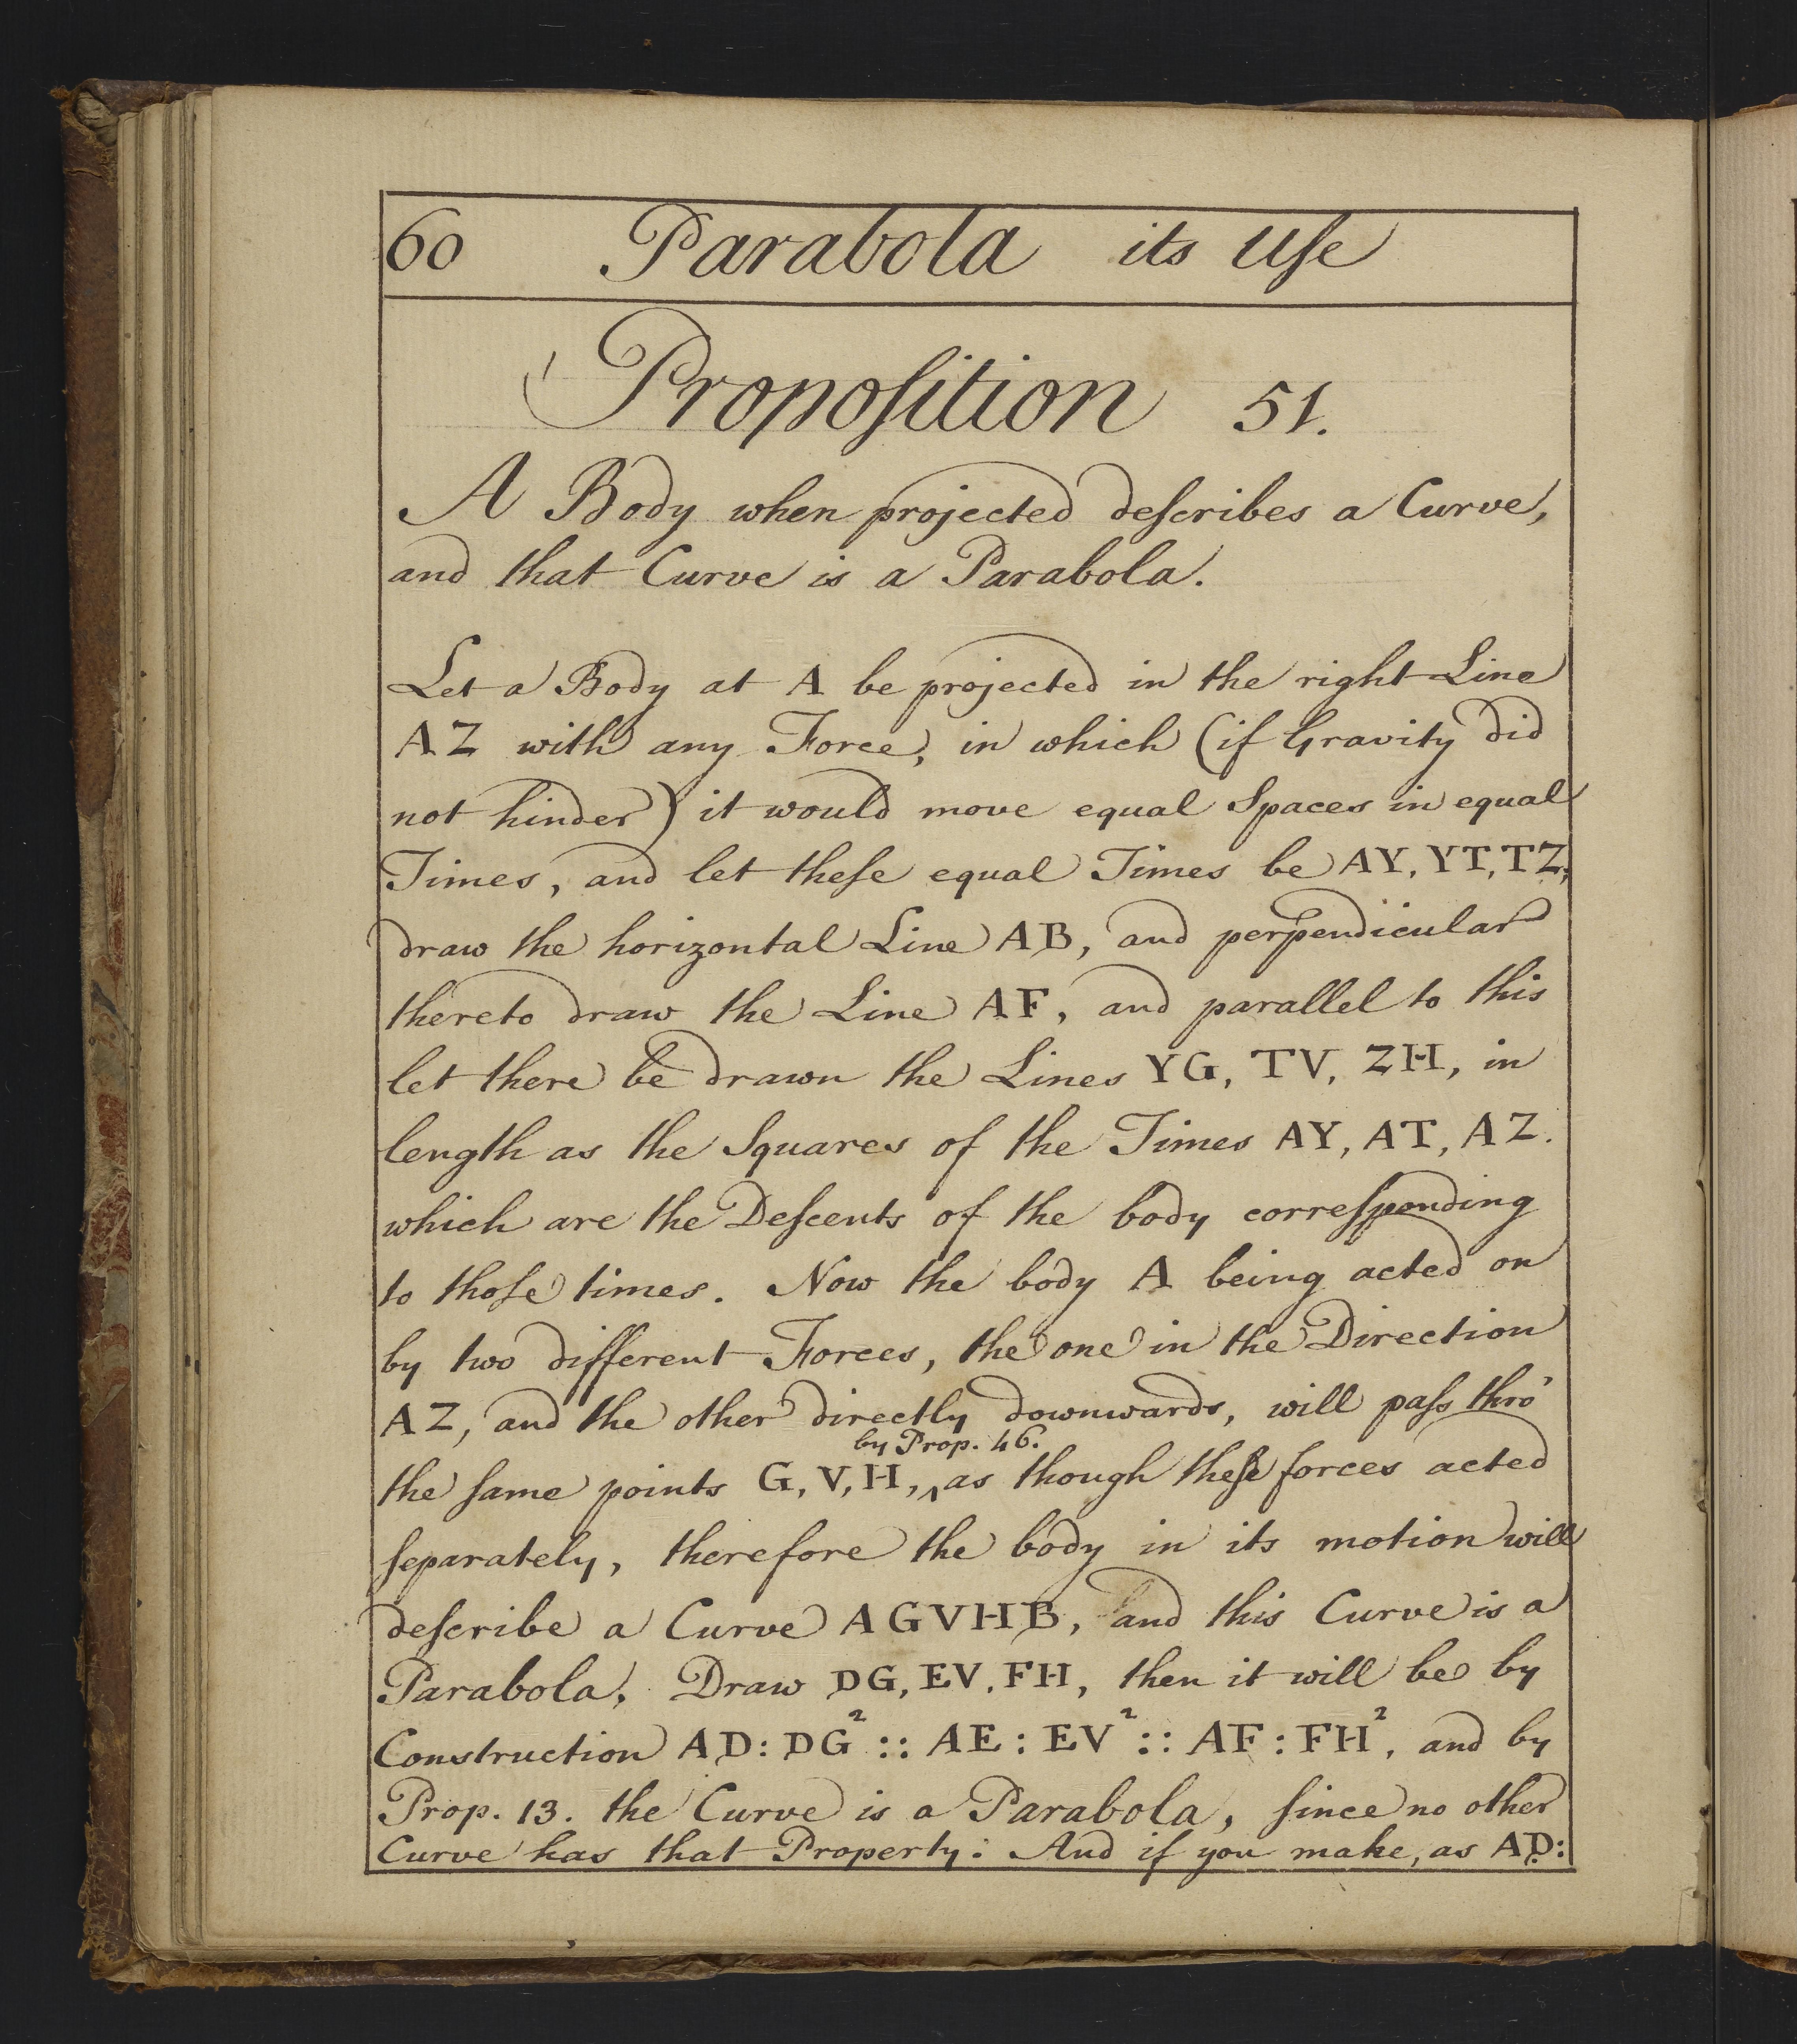 60 Parabola its Uſe
Propoſition 51.
A Body when projected deſcribes a Curve,
and that Curve is a Parabola.
Let a Body at A be projected in the right Line
AZ with any Force, in which (if Gravity did
not hinder) it would move equal Spaces in equal
Times, and let theſe equal Times be AY, YT, TZ;
draw the horizontal Line AB, and perpendicular
thereto draw the Line AF, and parallel to this
let there be drawn the Lines YG, TV, ZH, in
length as the Squares of the Times AY, AT, AZ.
which are the Deſcents of the body correſponding
to thoſe times. Now the body A being acted on
by two different Forces, the one in the Direction
AZ, and the other directly downwards, will paſs thro'
by Prop. 46.
the ſame points G, V, H, ‸ as though theſe forces acted
ſeparately, therefore the body in its motion will
deſcribe a Curve AGVHB, and this Curve is a
Parabola. Draw DG, EV, FH, then it will be by
Construction AD : DG² :: AE : EV² :: AF : FH², and by
Prop. 13. the Curve is a Parabola, ſince no other
Curve has that Property: And if you make, as AD: